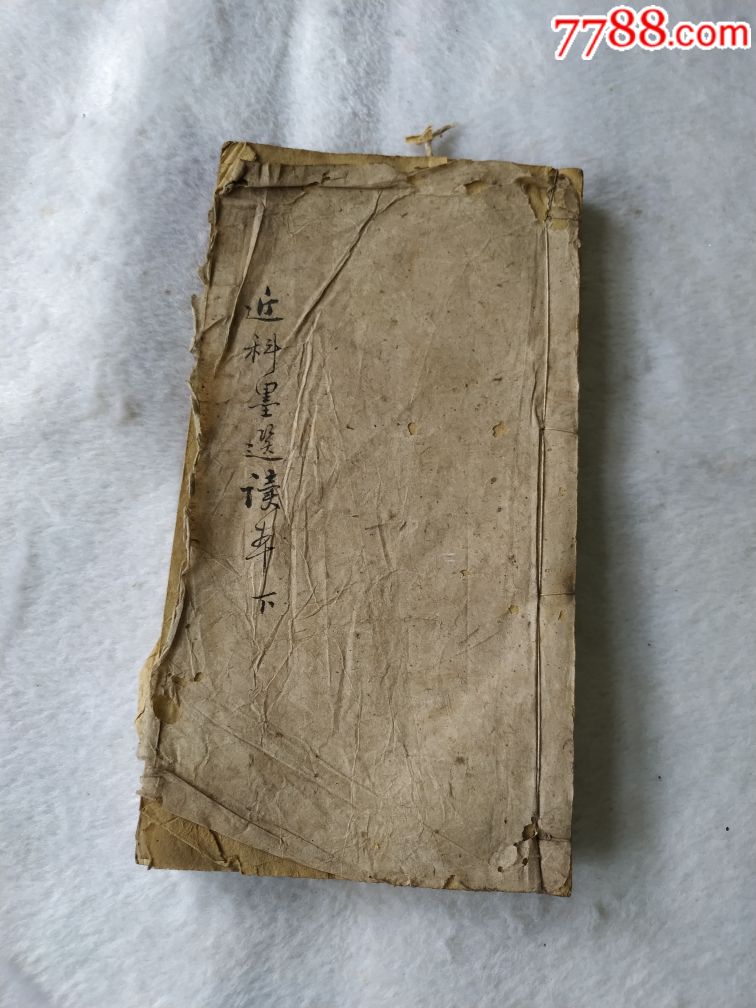 7788.com
近科墨選讀本下